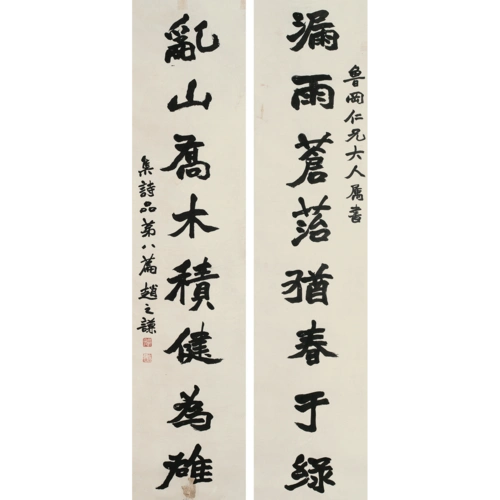 魯岡仁兄大人属書
漏雨蒼菭猶春于綠
亂山喬木積健為雄
集詩品第八篇趙之謙